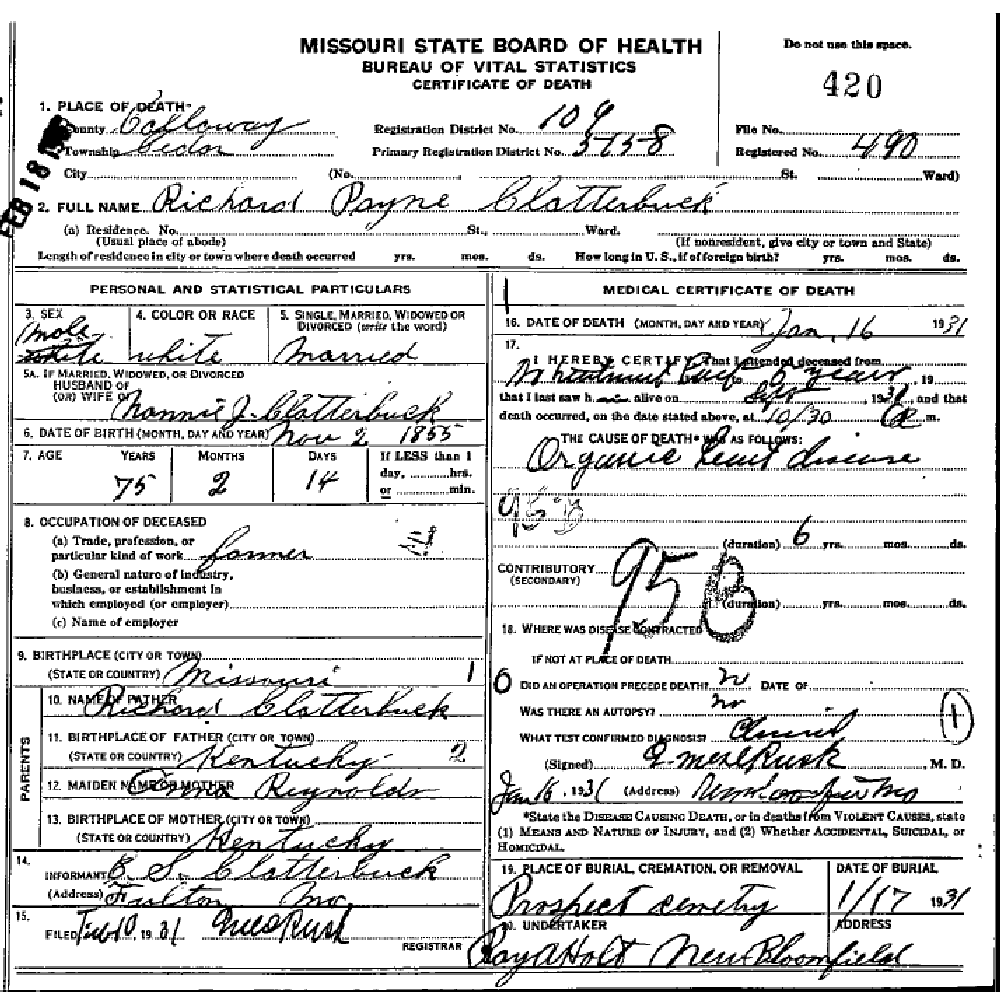 MISSOURI STATE BOARD OF HEALTH
BUREAU OF VITAL STATISTICS
CERTIFICATE OF DEATH
Do not use this space.
420
1. PLACE OF DEATH
County Calloway
Township Cedar
Registration District No. 109
Primary Registration District No. 5158
File No.
Registered No. 490
City (No. St. Ward)
FEB 18
2. FULL NAME Richard Payne Clatterbuck
(a) Residence. No. St., Ward.
(Usual place of abode) (If nonresident, give city or town and State)
Length of residence in city or town where death occurred yrs. mos. ds. How long in U.S., if of foreign birth? yrs. mos. ds.
PERSONAL AND STATISTICAL PARTICULARS
3. SEX male white
4. COLOR OR RACE white
5. SINGLE, MARRIED, WIDOWED OR DIVORCED (write the word) Married
5A. IF MARRIED, WIDOWED, OR DIVORCED
HUSBAND OF
(OR) WIFE OF Nannie J. Clatterbuck
6. DATE OF BIRTH (MONTH, DAY AND YEAR) Nov 2 1855
7. AGE YEARS MONTHS DAYS If LESS than 1 day, hrs. or min.
75 2 14
8. OCCUPATION OF DECEASED
(a) Trade, profession, or
particular kind of work farmer
(b) General nature of industry,
business, or establishment in
which employed (or employer)
(c) Name of employer
9. BIRTHPLACE (CITY OR TOWN)
(STATE OR COUNTRY) Missouri 1
PARENTS
10. NAME OF FATHER Richard Clatterbuck
11. BIRTHPLACE OF FATHER (CITY OR TOWN)
(STATE OR COUNTRY) Kentucky 2
12. MAIDEN NAME OF MOTHER Reynolds
13. BIRTHPLACE OF MOTHER (CITY OR TOWN)
(STATE OR COUNTRY) Kentucky
14.
INFORMANT S. Clatterbuck
(Address) Fulton Mo.
15.
FILED Feb 10, 1931
REGISTRAR
MEDICAL CERTIFICATE OF DEATH
16. DATE OF DEATH (MONTH, DAY AND YEAR) Jan, 16 1931
17.
I HEREBY CERTIFY, That I attended deceased from
years, 19
that I last saw h alive on Sept, 193, and that
death occurred, on the date stated above, at 10/30 m.
THE CAUSE OF DEATH* WAS AS FOLLOWS:
Organic heart disease
95B
(duration) 6 yrs. mos. ds.
CONTRIBUTORY
(SECONDARY)
95 B
(duration) yrs. mos. ds.
18. WHERE WAS DISEASE CONTRACTED
IF NOT AT PLACE OF DEATH
0 DID AN OPERATION PRECEDE DEATH? no DATE OF
WAS THERE AN AUTOPSY? no
1
WHAT TEST CONFIRMED DIAGNOSIS?
(Signed) M. D.
Jan 16, 1931 (Address) New Bloomfield Mo
*State the DISEASE CAUSING DEATH, or in deaths from VIOLENT CAUSES, state
(1) MEANS AND NATURE OF INJURY, and (2) Whether ACCIDENTAL, SUICIDAL, or
HOMICIDAL.
19. PLACE OF BURIAL, CREMATION, OR REMOVAL DATE OF BURIAL
Prospect cemetry 1/17 1931
20. UNDERTAKER ADDRESS
Ray A Holt New Bloomfield